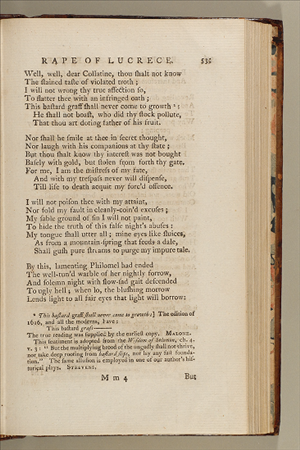 RAPE OF LUCRECE. 535
Well, well, dear Collatine, thou ſhalt not know
The ſtained taſte of violated troth;
I will not wrong thy true affection ſo,
To flatter thee with an infringed oath;
This baſtard graff ſhall never come to growth ⁸:
He ſhall not boaſt, who did thy ſtock pollute,
That thou art doting father of his fruit.
Nor ſhall he ſmile at thee in ſecret thought,
Nor laugh with his companions at thy ſtate;
But thou ſhalt know thy intereſt was not bought
Baſely with gold, but ſtolen from forth thy gate.
For me, I am the miſtreſs of my fate,
And with my treſpaſs never will diſpenſe,
Till life to death acquit my forc'd offence.
I will not poiſon thee with my attaint,
Nor fold my fault in cleanly-coin'd excuſes;
My ſable ground of ſin I will not paint,
To hide the truth of this falſe night's abuſes:
My tongue ſhall utter all; mine eyes like ſluices,
As from a mountain-ſpring that feeds a dale,
Shall guſh pure ſtreams to purge my impure tale.
By this, lamenting Philomel had ended
The well-tun'd warble of her nightly ſorrow,
And ſolemn night with ſlow-ſad gait deſcended
To ugly hell; when lo, the bluſhing morrow
Lends light to all fair eyes that light will borrow:
⁸ This baſtard graff ſhall never come to growth:] The edition of
1616, and all the moderns, have:
This baſtard graſs—
The true reading was ſupplied by the earlieſt copy. MALONE.
This ſentiment is adopted from the Wiſdom of Solomon, ch. 4.
v. 3: "But the multiplying brood of the ungodly ſhall not thrive,
nor take deep rooting from baſtard ſlips, nor lay any faſt founda-
tion." The ſame alluſion is employed in one of our author's hiſ-
torical plays. STEEVENS.
M m 4 But